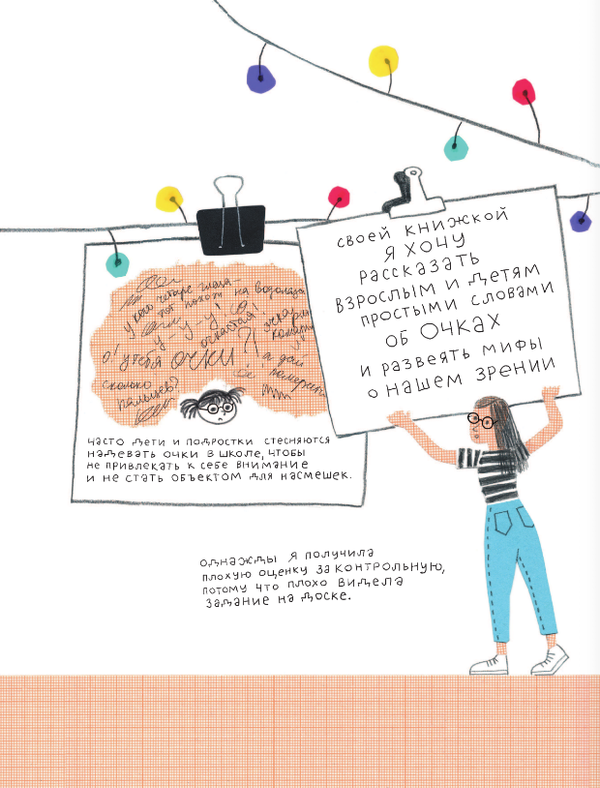 своей книжкой
я хочу
рассказать
взрослым и детям
простыми словами
об очках
и развеять мифы
о нашем зрении
у кого четыре глаза –
тот похож на водолаза
у-у-у!
очкастая!
о! у тебя очки?!
а дай
померить
сколько
пальцев?
часто дети и подростки стесняются
надевать очки в школе, чтобы
не привлекать к себе внимание
и не стать объектом для насмешек.
однажды я получила
плохую оценку за контрольную,
потому что плохо видела
задание на доске.